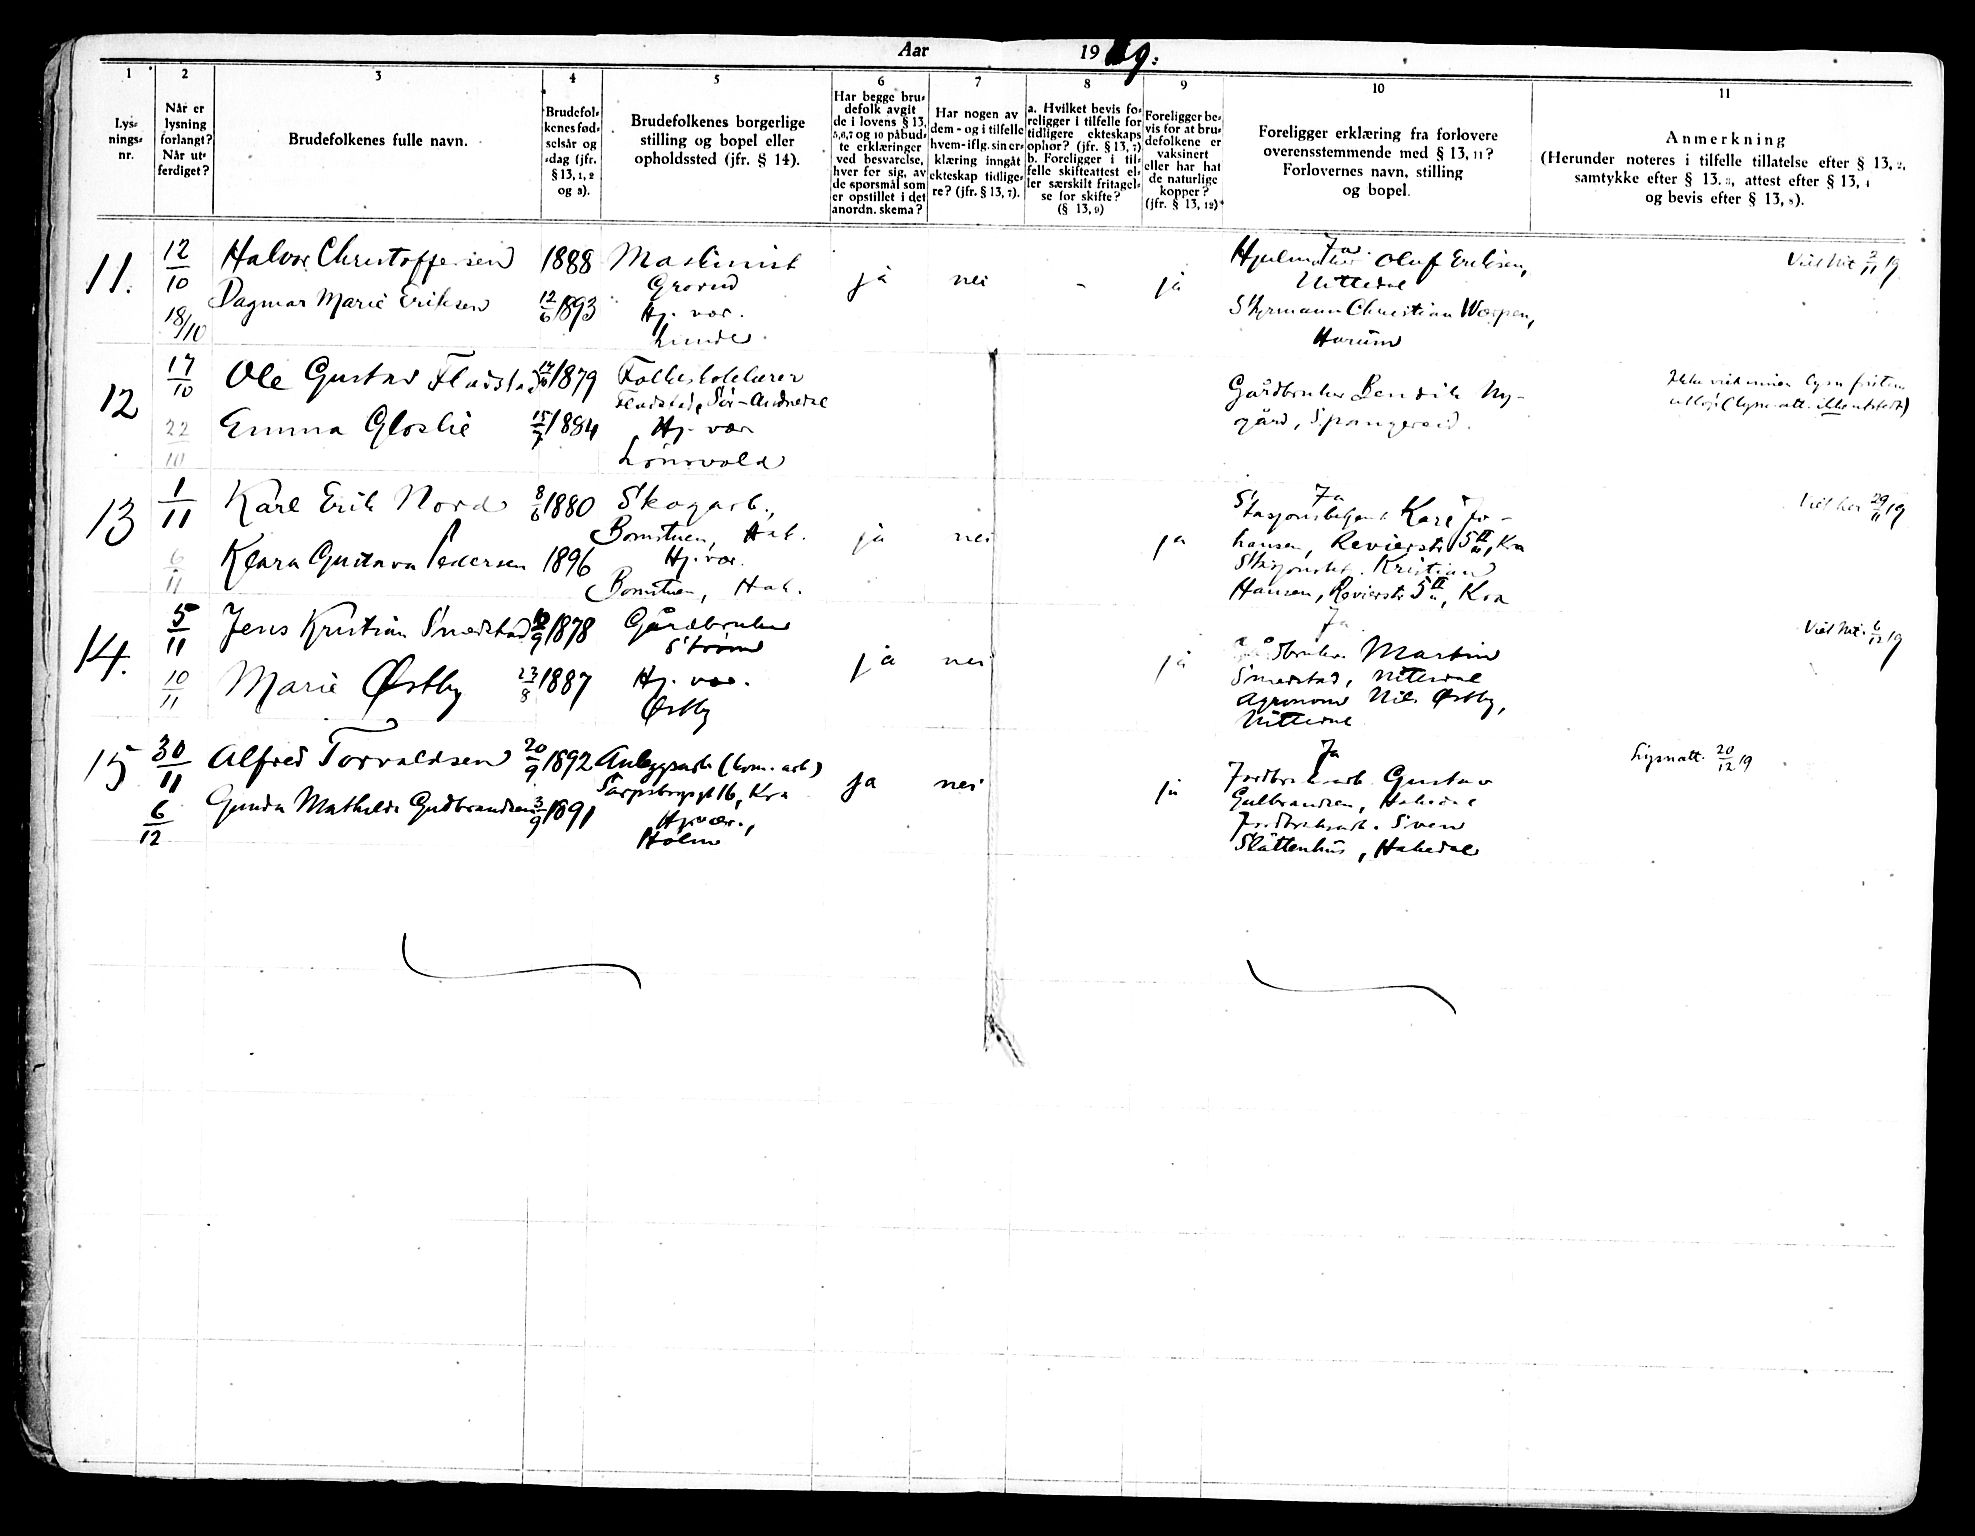 Aar 1919.
1 2 3 4 5 6 7 8 9 10 11
Lys-
nings-
nr.
Når er
lysning
forlangt?
Når ut-
ferdiget?
Brudefolkenes fulle navn.
Brudefol-
kenes fød-
selsår og
-dag (jfr.
§ 13, 1, 2
og 3).
Brudefolkenes borgerlige
stilling og bopel eller
opholdssted (jfr. § 14).
Har begge bru-
defolk avgit
de i lovens § 13,
5,6,7 og 10 påbud-
te erklæringer
ved besvarelse,
hver for sig, av
de spørsmål som
er opstillet i det
anordn. skema?
Har nogen av
dem - og i tilfelle
hvem - iflg. sin er-
klæring inngåt
ekteskap tidlige-
re? (jfr. § 13, 7).
a. Hvilket bevis fo-
religger i tilfelle for
tidligere ekteskaps
ophør? (jfr. § 13, 7)
b. Foreligger i til-
felle skifteattest el-
ler særskilt fritagel-
se for skifte?
(§ 13, 9)
Foreligger be-
vis for at bru-
defolkene er
vaksinert
eller har hat
de naturlige
kopper?
(jfr. § 13, 12)
Foreligger erklæring fra forlovere
overensstemmende med § 13, 11?
Forlovernes navn, stilling
og bopel.
Anmerkning
(Herunder noteres i tilfelle tillatelse efter § 13, 2,
samtykke efter § 13, 3, attest efter § 13, 4
og bevis efter § 13, 8).
11.
12/10
18/10
Halvor Christoffersen
Dagmar Marie Eriksen
1888
12/6 1893
Maskinist
Grorud
Hj. vær.
Lunde
ja
nei
-
ja
Ja
Oluf Eriksen,
Nittedal
Styrmann Christian
Vielt Nit. 2/11 19
12
17/10
22/10
Ole Gustav Fladstad
Emma Gloslie
1879
15/7 1884
Folkeskolelærer
Fladstad, Sør-Audnedal
Hj. vær
Gårdbruker Bendik Ny-
gård, Spangereid.
(lysn.att. ikke utstedt)
13
1/11
6/11
Karl Erik Nord
Klara Gustava Pedersen
8/6 1880
1896
Skogarb.,
Bomstuen, Hak.
Hj. vær.
Bomstuen, Hak.
ja
nei
ja
Ja
Stasjonsbetjent Kare Jo-
hansen, Revierstr. 5 II, Kra
Kristian
Hansen, Revierstr. 5 II, Kra
Viet her 29/11 19
14.
5/11
10/11
Jens Kristian Smedstad
Marie Østby
1878
23/8 1887
Gårdbruker
Strøm
Hj. vær.
Østby
ja
nei
ja
Ja
Gårdbruker Martin
Smedstad, Nittedal
Agronom Nils Østby,
Nittedal
Viet Nit. 6/12 19
15
30/11
6/12
Alfred Torvaldsen
Gunda Mathilde Gudbrandsen
20/9 1892
3/9 1891
Anleggsarb (kom. arb)
Sarpsborggt 16, Kra
Hj. vær.,
Holm
ja
nei
ja
Ja
Jordbruksarb. Gustav
Gulbrandsen, Hakedal
Jordbruksarb. Sven
Slåttenhus, Hakedal
Lysn.att. 20/12 19